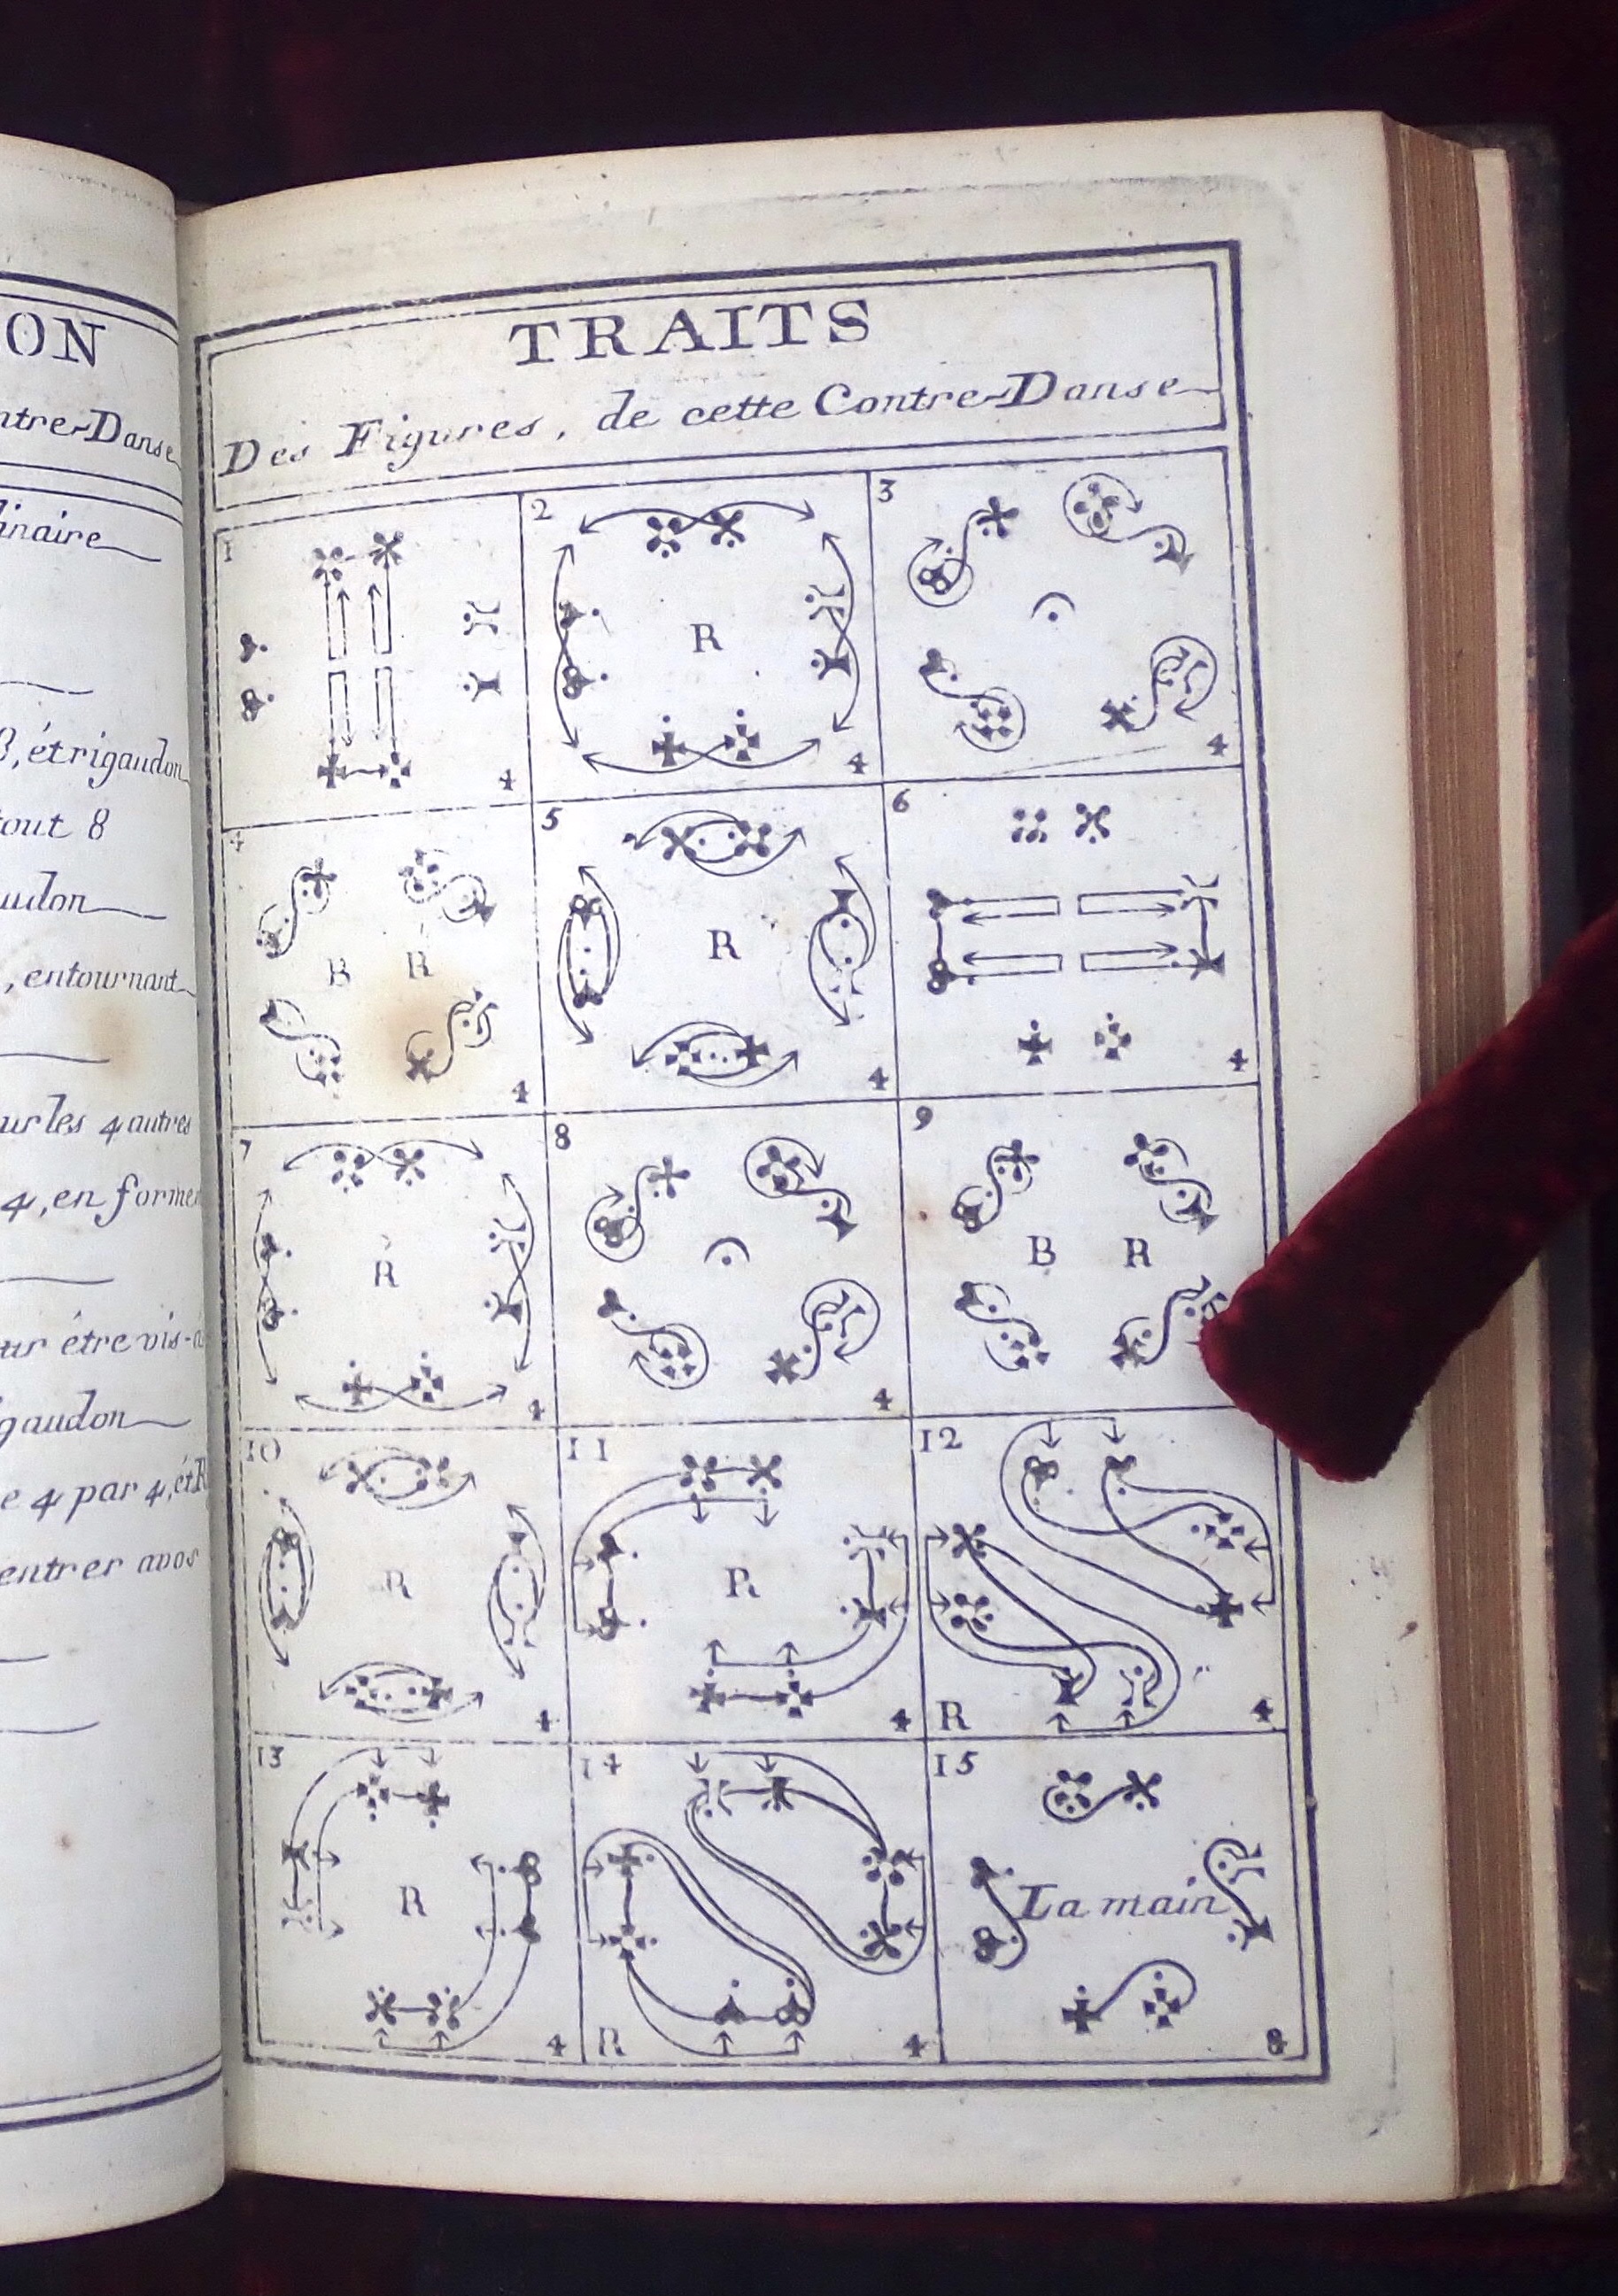 ON
ntre-Danse
linaire
8, ét rigaudon
tout 8
udon
, entournant
ur les 4 autres
4, en former
ur étre vis-a
gaudon
e 4 par 4, ét R
entrer avos
TRAITS
Des Figures, de cette Contre-Danse
1 4
2 R 4
3 4
4 B R 4
5 R 4
6 4
7 R 4
8 4
9 B R
10 R 4
11 R 4
12 R 4
13 R 4
14 R 4
15 La main 8